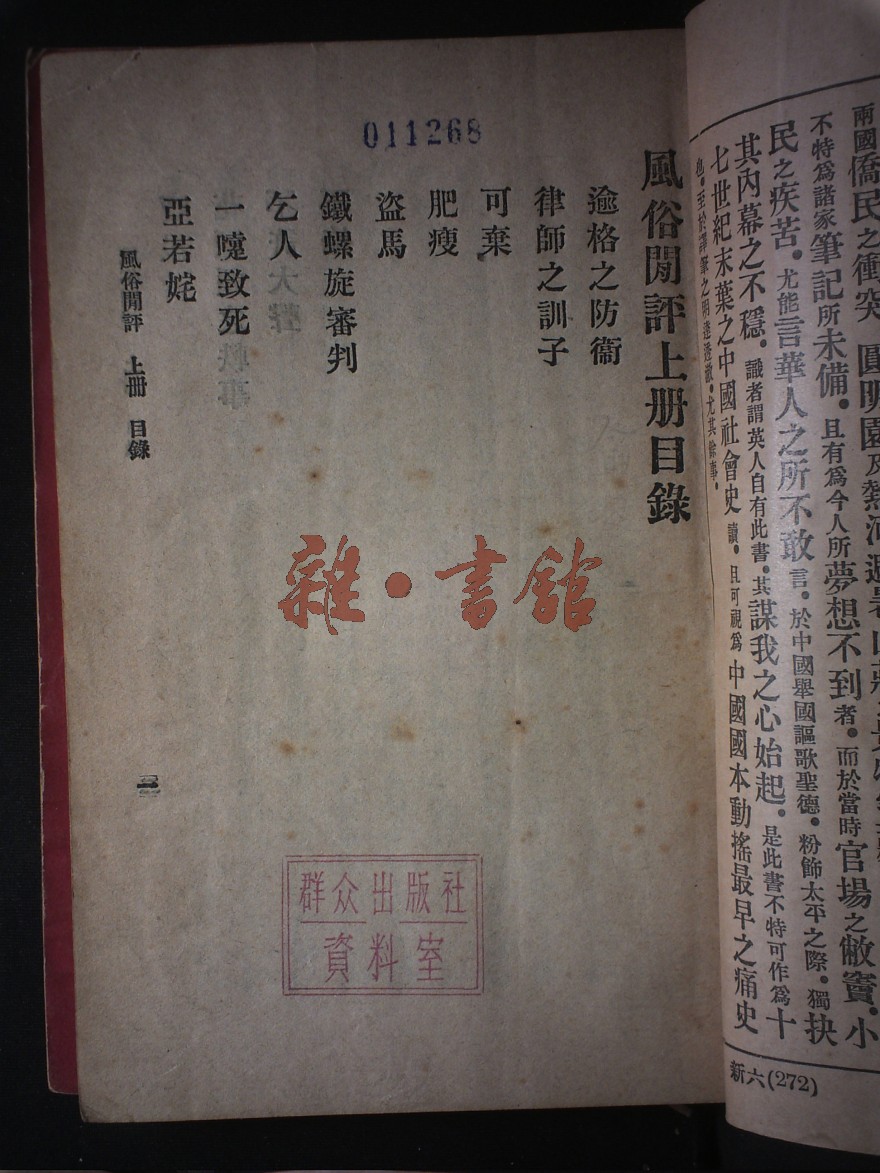 兩國僑民之衝突
不特為諸家筆記所未備。且有為今人所夢想不到者。而於當時官場之敝竇。小
民之疾苦。尤能言華人之所不敢言。於中國舉國謳歌聖德。粉飾太平之際。獨抉
其內幕之不穩。識者謂英人自有此書。其謀我之心始起。是此書不特可作為十
七世紀末葉之中國社會史讀。且可視為中國國本動搖最早之痛史
也。至於譯筆之明達透澈。尤其餘事。
新六(272)
011268
風俗閒評上册目錄
逾格之防衞
律師之訓子
可棄
肥瘦
盜馬
鐵螺旋審判
乞人
一嚏致死
亞若姹
風俗閒評 上册 目錄
雜·書館
群众出版社
資料室